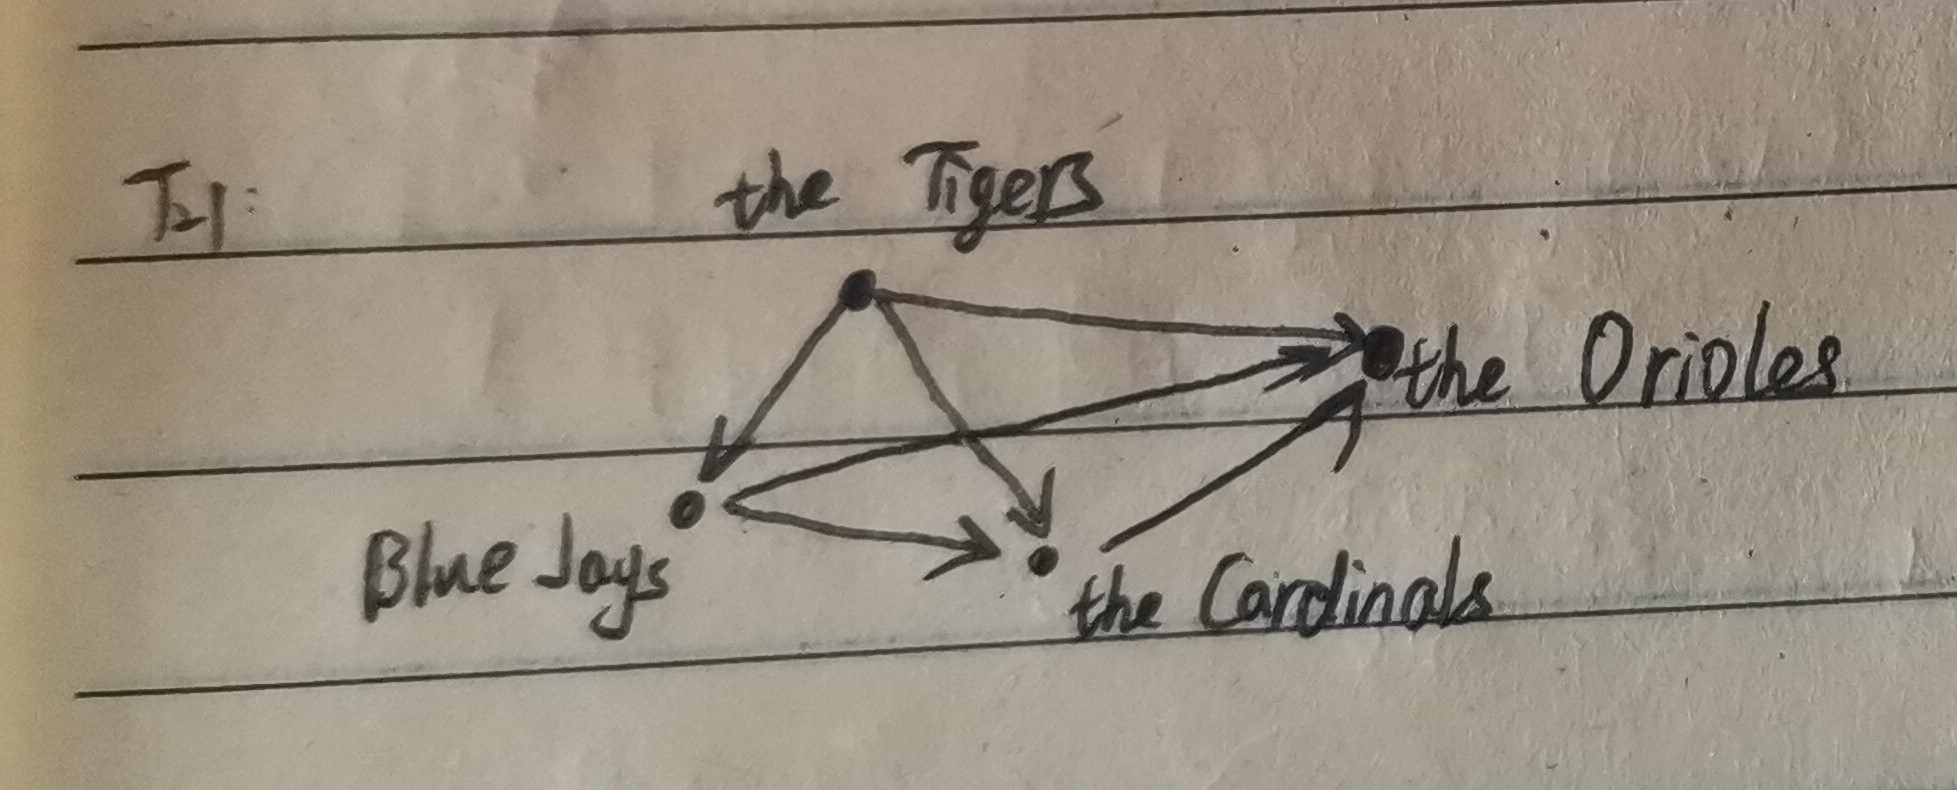 the Tigers
the Orioles
Blue Jays
the Cardinals